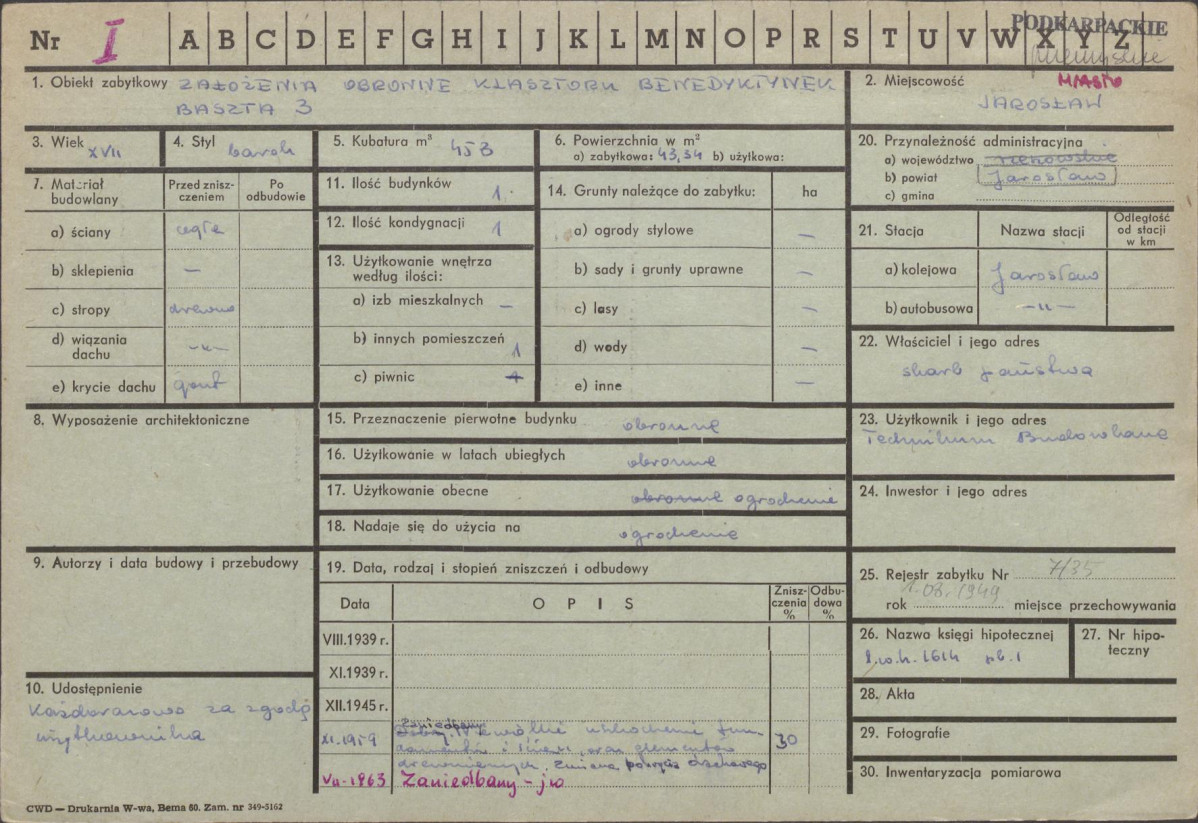 PODKARPACKIE
Nr I A B C D E F G H I J K L M N O P R S T U V W X Y Z
1. Obiekt zabytkowy ZAŁOŻENIA OBRONNE KLASZTORU BENEDYKTYNEK
BASZTA 3
2. Miejscowość MIASTO
JAROSŁAW
3. Wiek XVII
4. Styl barok
5. Kubatura m³ 453
6. Powierzchnia w m²
a) zabytkowa: 43,34 b) użytkowa:
7. Materiał budowlany
Przed zniszczeniem
Po odbudowie
a) ściany cegła
b) sklepienia —
c) stropy drewno
d) wiązania dachu -„-
e) krycie dachu gont
8. Wyposażenie architektoniczne
9. Autorzy i data budowy i przebudowy
10. Udostępnienie
Każdorazowo za zgodą
użytkownika
11. Ilość budynków 1.
12. Ilość kondygnacji 1
13. Użytkowanie wnętrza
według ilości:
a) izb mieszkalnych —
b) innych pomieszczeń 1
c) piwnic
14. Grunty należące do zabytku: ha
a) ogrody stylowe —
b) sady i grunty uprawne —
c) lasy —
d) wody —
e) inne —
15. Przeznaczenie pierwotne budynku obronne
16. Użytkowanie w latach ubiegłych obronne
17. Użytkowanie obecne obronne ogrodzenie
18. Nadaje się do użycia na ogrodzenie
19. Data, rodzaj i stopień zniszczeń i odbudowy
Data
OPIS
Zniszczenia %
Odbudowa %
VIII.1939 r.
XI.1939 r.
XII.1945 r.
XI.1959 Zaniedbany niewielkie uszkodzenia fun- 30
damentów i ścian, oraz elementów
drewnianych, zmiana pokrycia dachowego
VII-1963 Zaniedbany - jw
20. Przynależność administracyjna
a) województwo rzeszowskie
b) powiat Jarosław
c) gmina
21. Stacja
Nazwa stacji
Odległość od stacji w km
a) kolejowa Jarosław
b) autobusowa -„-
22. Właściciel i jego adres
skarb państwa
23. Użytkownik i jego adres
Technikum Budowlane
24. Inwestor i jego adres
25. Rejestr zabytku Nr 7/35
1.08.1949
rok miejsce przechowywania
26. Nazwa księgi hipotecznej
l.w.h. 1614 pb. 1
27. Nr hipoteczny
28. Akta
29. Fotografie
30. Inwentaryzacja pomiarowa
CWD — Drukarnia W-wa, Bema 60. Zam. nr 349-5162